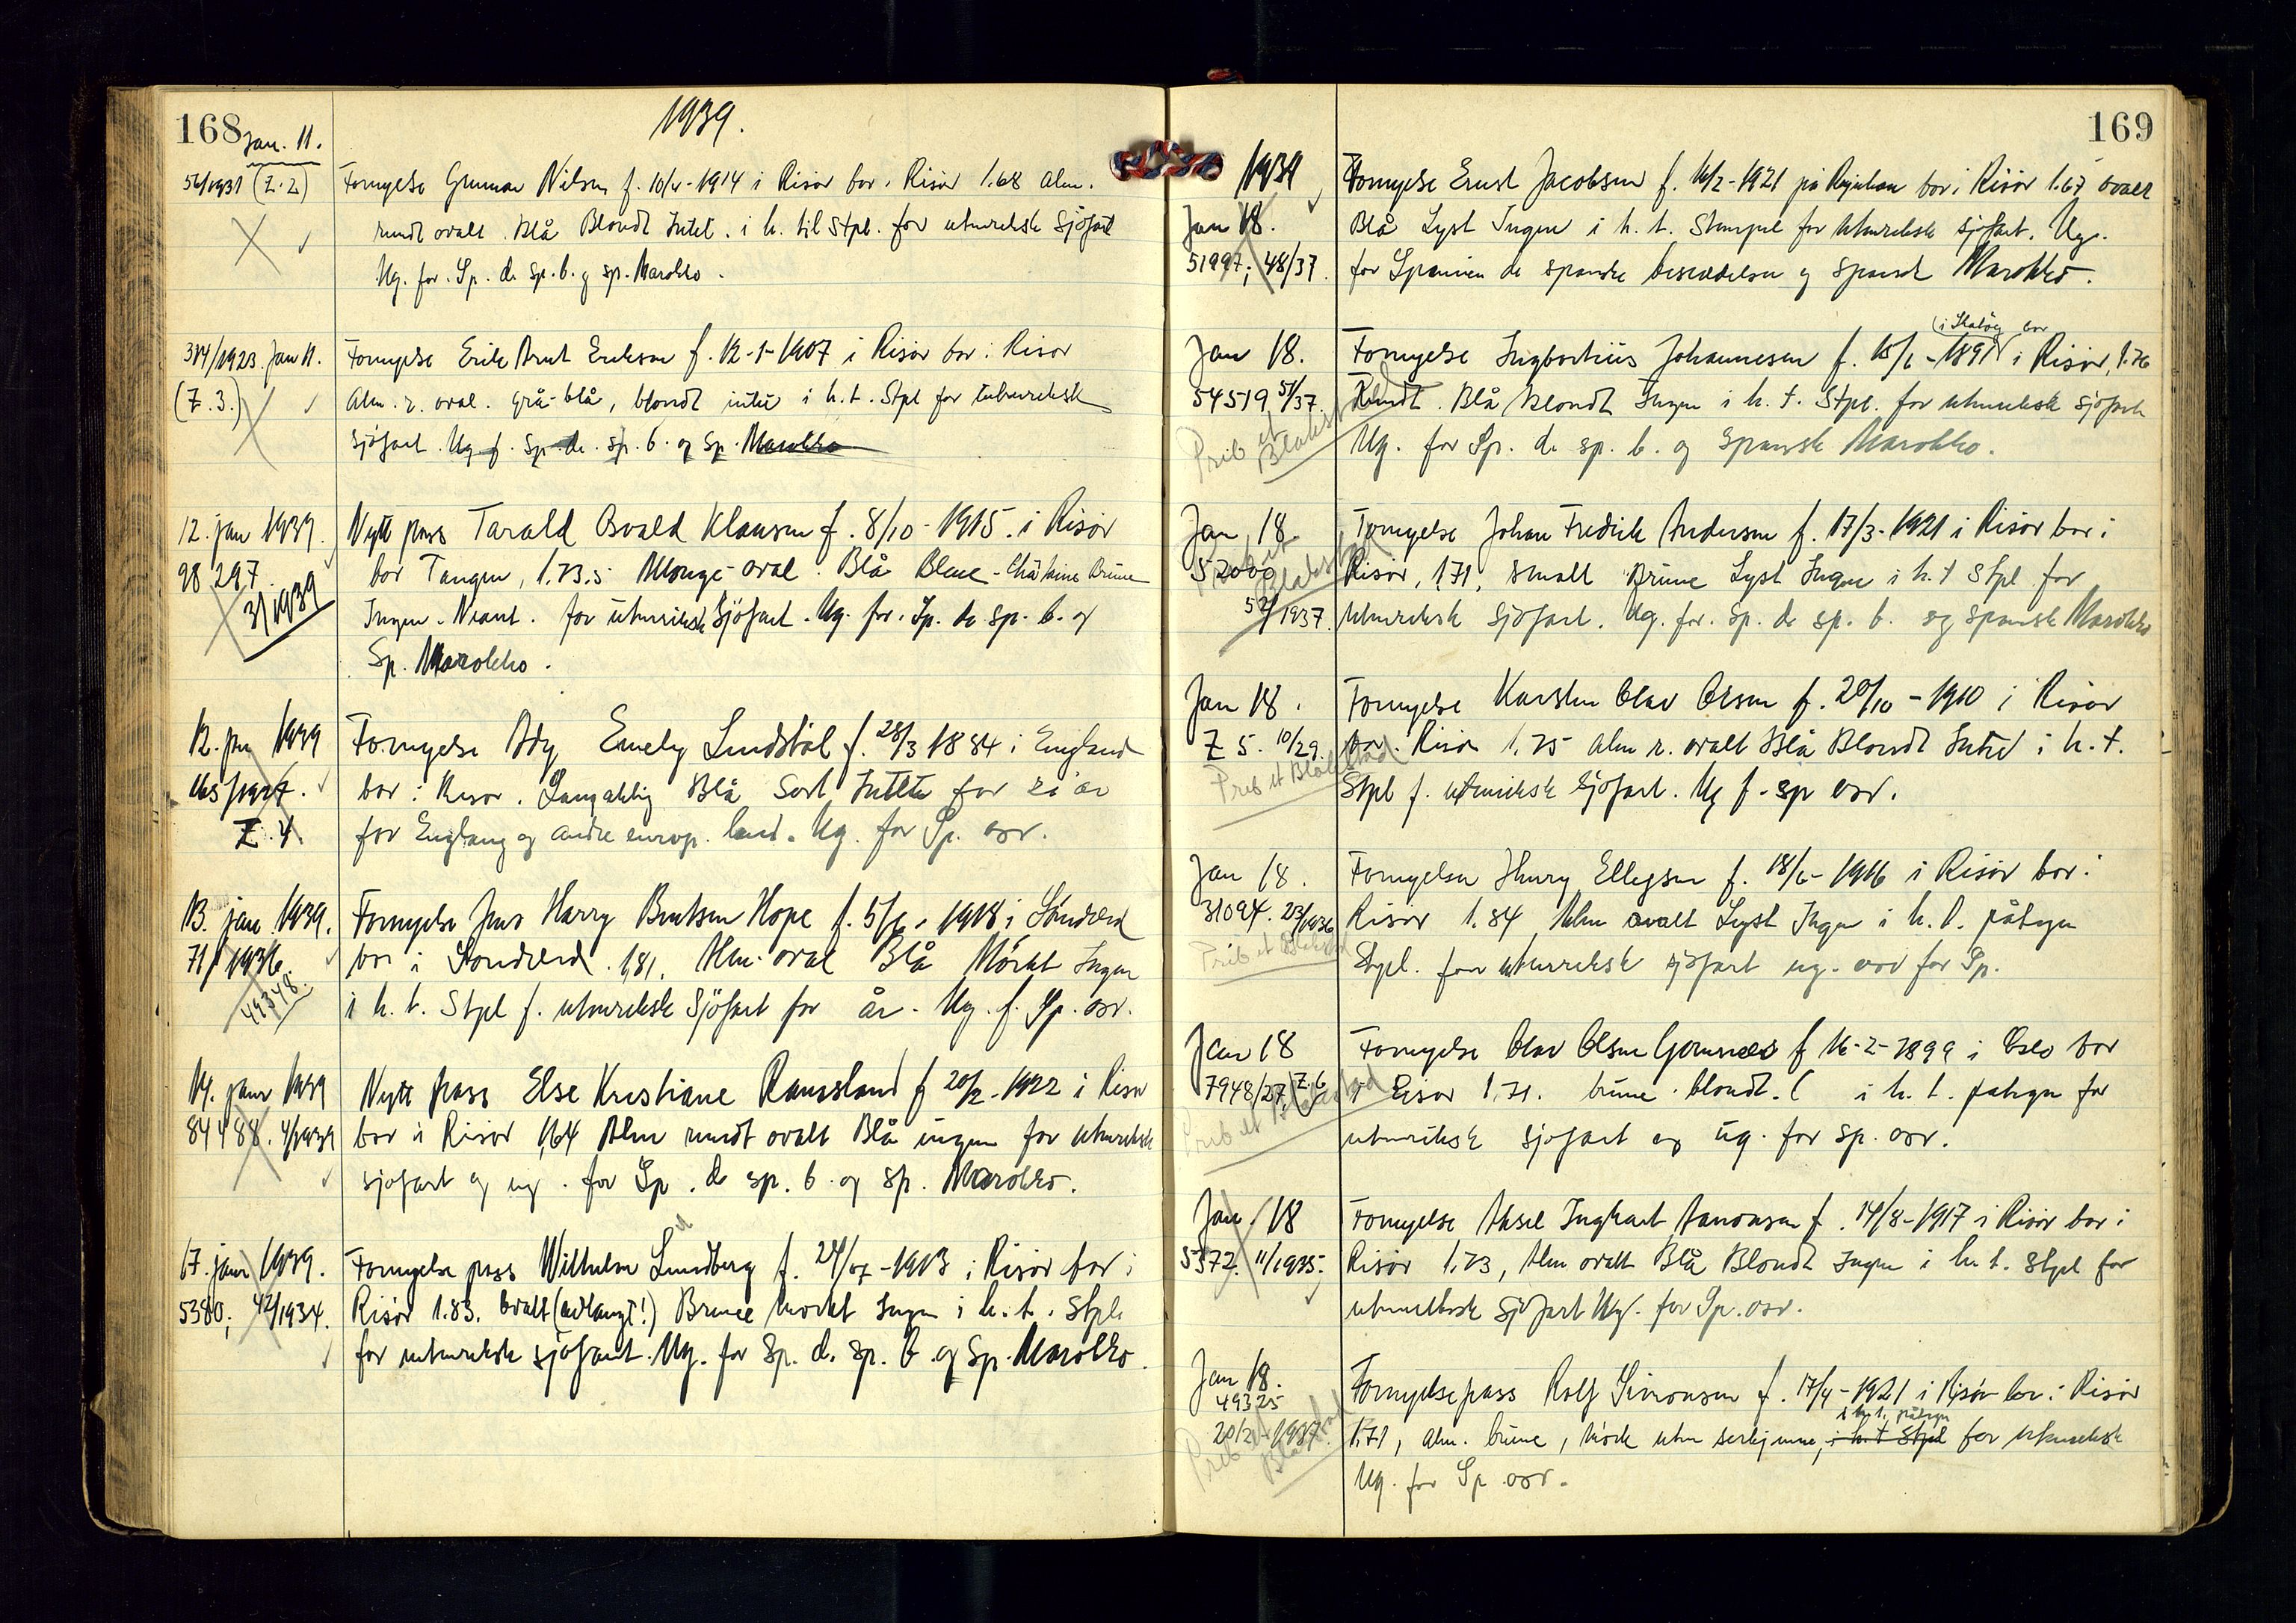 168
1939.
Jan. 11.
56/1931 (Z.2)
Fornyelse Gunnar Nilsen f. 10/4-1914 i Risør bor i Risør 1.68 Alm.
rundt ovalt. Blå Blondt Intet. i h. til Stpl. for utenriksk sjøfart
Ug. for. Sp. de sp. b. og sp. Marokko.
384/1923. Jan 11.
(Z.3.)
Fornyelse Erik Arnt Eriksen f. 12-1-1907 i Risør bor i Risør
Alm. r. oval. grå-blå, blondt intet i h. t. Stpl for utenriksk
sjøfart. Ug. f. Sp. de. sp. b. og Sp. Marokko
12. jan 1939.
98 297.
3/1939
Nytt pass Tarald Osvald Klausen f. 8/10-1915. i Risør
bor Tangen, 1.73.5 oval. Blå
Ingen. for utenriksk Sjøfart. Ug. for. Sp. de sp. b. og
Sp. Marokko.
12. jan 1939
165/1927.
Z. 4
Fornyelse Emely Lindstöl f. 28/3 1884 i England
bor i Risør. Blå Sort for år
for og andre europ. land. Ug. for Sp. osv.
13. jan. 1939.
71/1936.
49348.
Fornyelse Jens Harry Bentsen Hope f. 5/6-1918 i Söndeled
bor i Söndeled. 1,81. Alm. oval Blå Mörkt Ingen
i h. t. Stpl f. utenriksk Sjöfart for år. Ug. f. Sp. osv.
14. jan 1939
84488. 4/1939
Nytt pass Else Kristiane f 20/2-1922 i Risør
bor i Risør 1,64 Alm rundt ovalt Blå ingen for utenriksk
sjøfart og ug. for Sp. de sp. b. og sp. Marokko.
17. jan 1939.
5380; 42/1934.
Fornyelse pass Wilhelm Lundberg f. 24/07-1913 i Risør bor i
Risør 1.83. ovalt (avlangt!) Brune Mörkt Ingen i h. t. Stpl.
for utenriksk sjøfart. Ug. for Sp. de. sp. b og Sp. Marokko.
169
1939
Jan 18.
51997; 48/37.
Fornyelse Ernst Jacobsen f. 16/2-1921 på Rjukan bor i Risör 1.67 ovalt
Blå Lyst Ingen i h. t. Stempel for utenriksk sjøfart. Ug.
for Spanien de spanske besiddelser og spansk Marokko.
(i Skatøy bor
Jan 18.
54519 51/37.
Prib et Blakstad
Fornyelse Ingbertius Johannesen f. 15/6-1891 i Risør, 1.76
Rundt. Blå blondt Ingen i h. t. Stpl. for utenriksk sjøfart
Ug. for Sp. de sp. b. og Spansk Marokko.
Jan 18.
52000
52/1937.
Prib et Blakstad
Fornyelse Johan Fredrik Andersen f. 17/3-1921 i Risør bor i
Risør, 1,71, smalt Brune Lyst Ingen i h. t Stpl for
utenriksk sjöfart. Ug. for. Sp. de sp. b. og spansk Marokko
Jan 18.
Z 5. 10/29.
Prib et Blakstad
Fornyelse Karsten Olav Olsen f. 20/10-1910 i Risør
bor. Risør 1.75 alm r. ovalt Blå Blondt Intet i h. t.
Stpl f. utenriksk Sjöfart. Ug f. sp osv.
Jan 18.
31094. 23/1936
Prib et Blakstad
Fornyelse Henry Ellegsen f. 18/6-1916 i Risör bor i
Risör 1.84 Alm ovalt Lyst Ingen i h. t. påtegn
Stpl. for utenriksk sjöfart ug. osv for Sp.
Jan 18
7948/27, (Z.6
Prib et Blakstad
Fornyelse Olav Olsen f 16-2-1899 i Oslo bor
i Risør 1.71. brune. blondt. ( i h. t. påtegn for
utenriksk sjøfart og ug. for sp. osv.
Jan. 18
5372. 11/1935.
Fornyelse Aksel Aanonsen f. 14/8-1917 i Risör bor i
Risör 1.73, Alm ovalt Blå Blondt Ingen i h. t. Stpl for
utenriksk Sjöfart Ug. for Sp. osv.
Jan 18.
49325
20/2-1937.
Prib et Blakstad
Fornyelse pass Rolf Simonsen f. 17/4-1921 i Risör bor i Risör
i h. t. påtegn
1.71, alm. brune, mörk uten særkjenne, i h. t Stpl for utenriksk
Ug. for Sp osv.